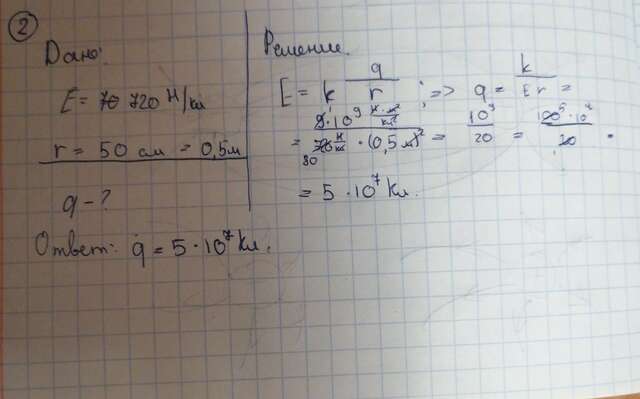 2
Дано:
E = 720 Н/Кл
r = 50 см = 0,5м
q - ?
Решение.
E = k q/r ; => q = k/Er =
= 9·10⁹ Н·м²/Кл² / 720 Н/Кл · (0,5 м)² = 10⁹/20 = 10²/20 =
80
= 5 · 10⁷ Кл.
Ответ: q = 5 · 10⁷ Кл.